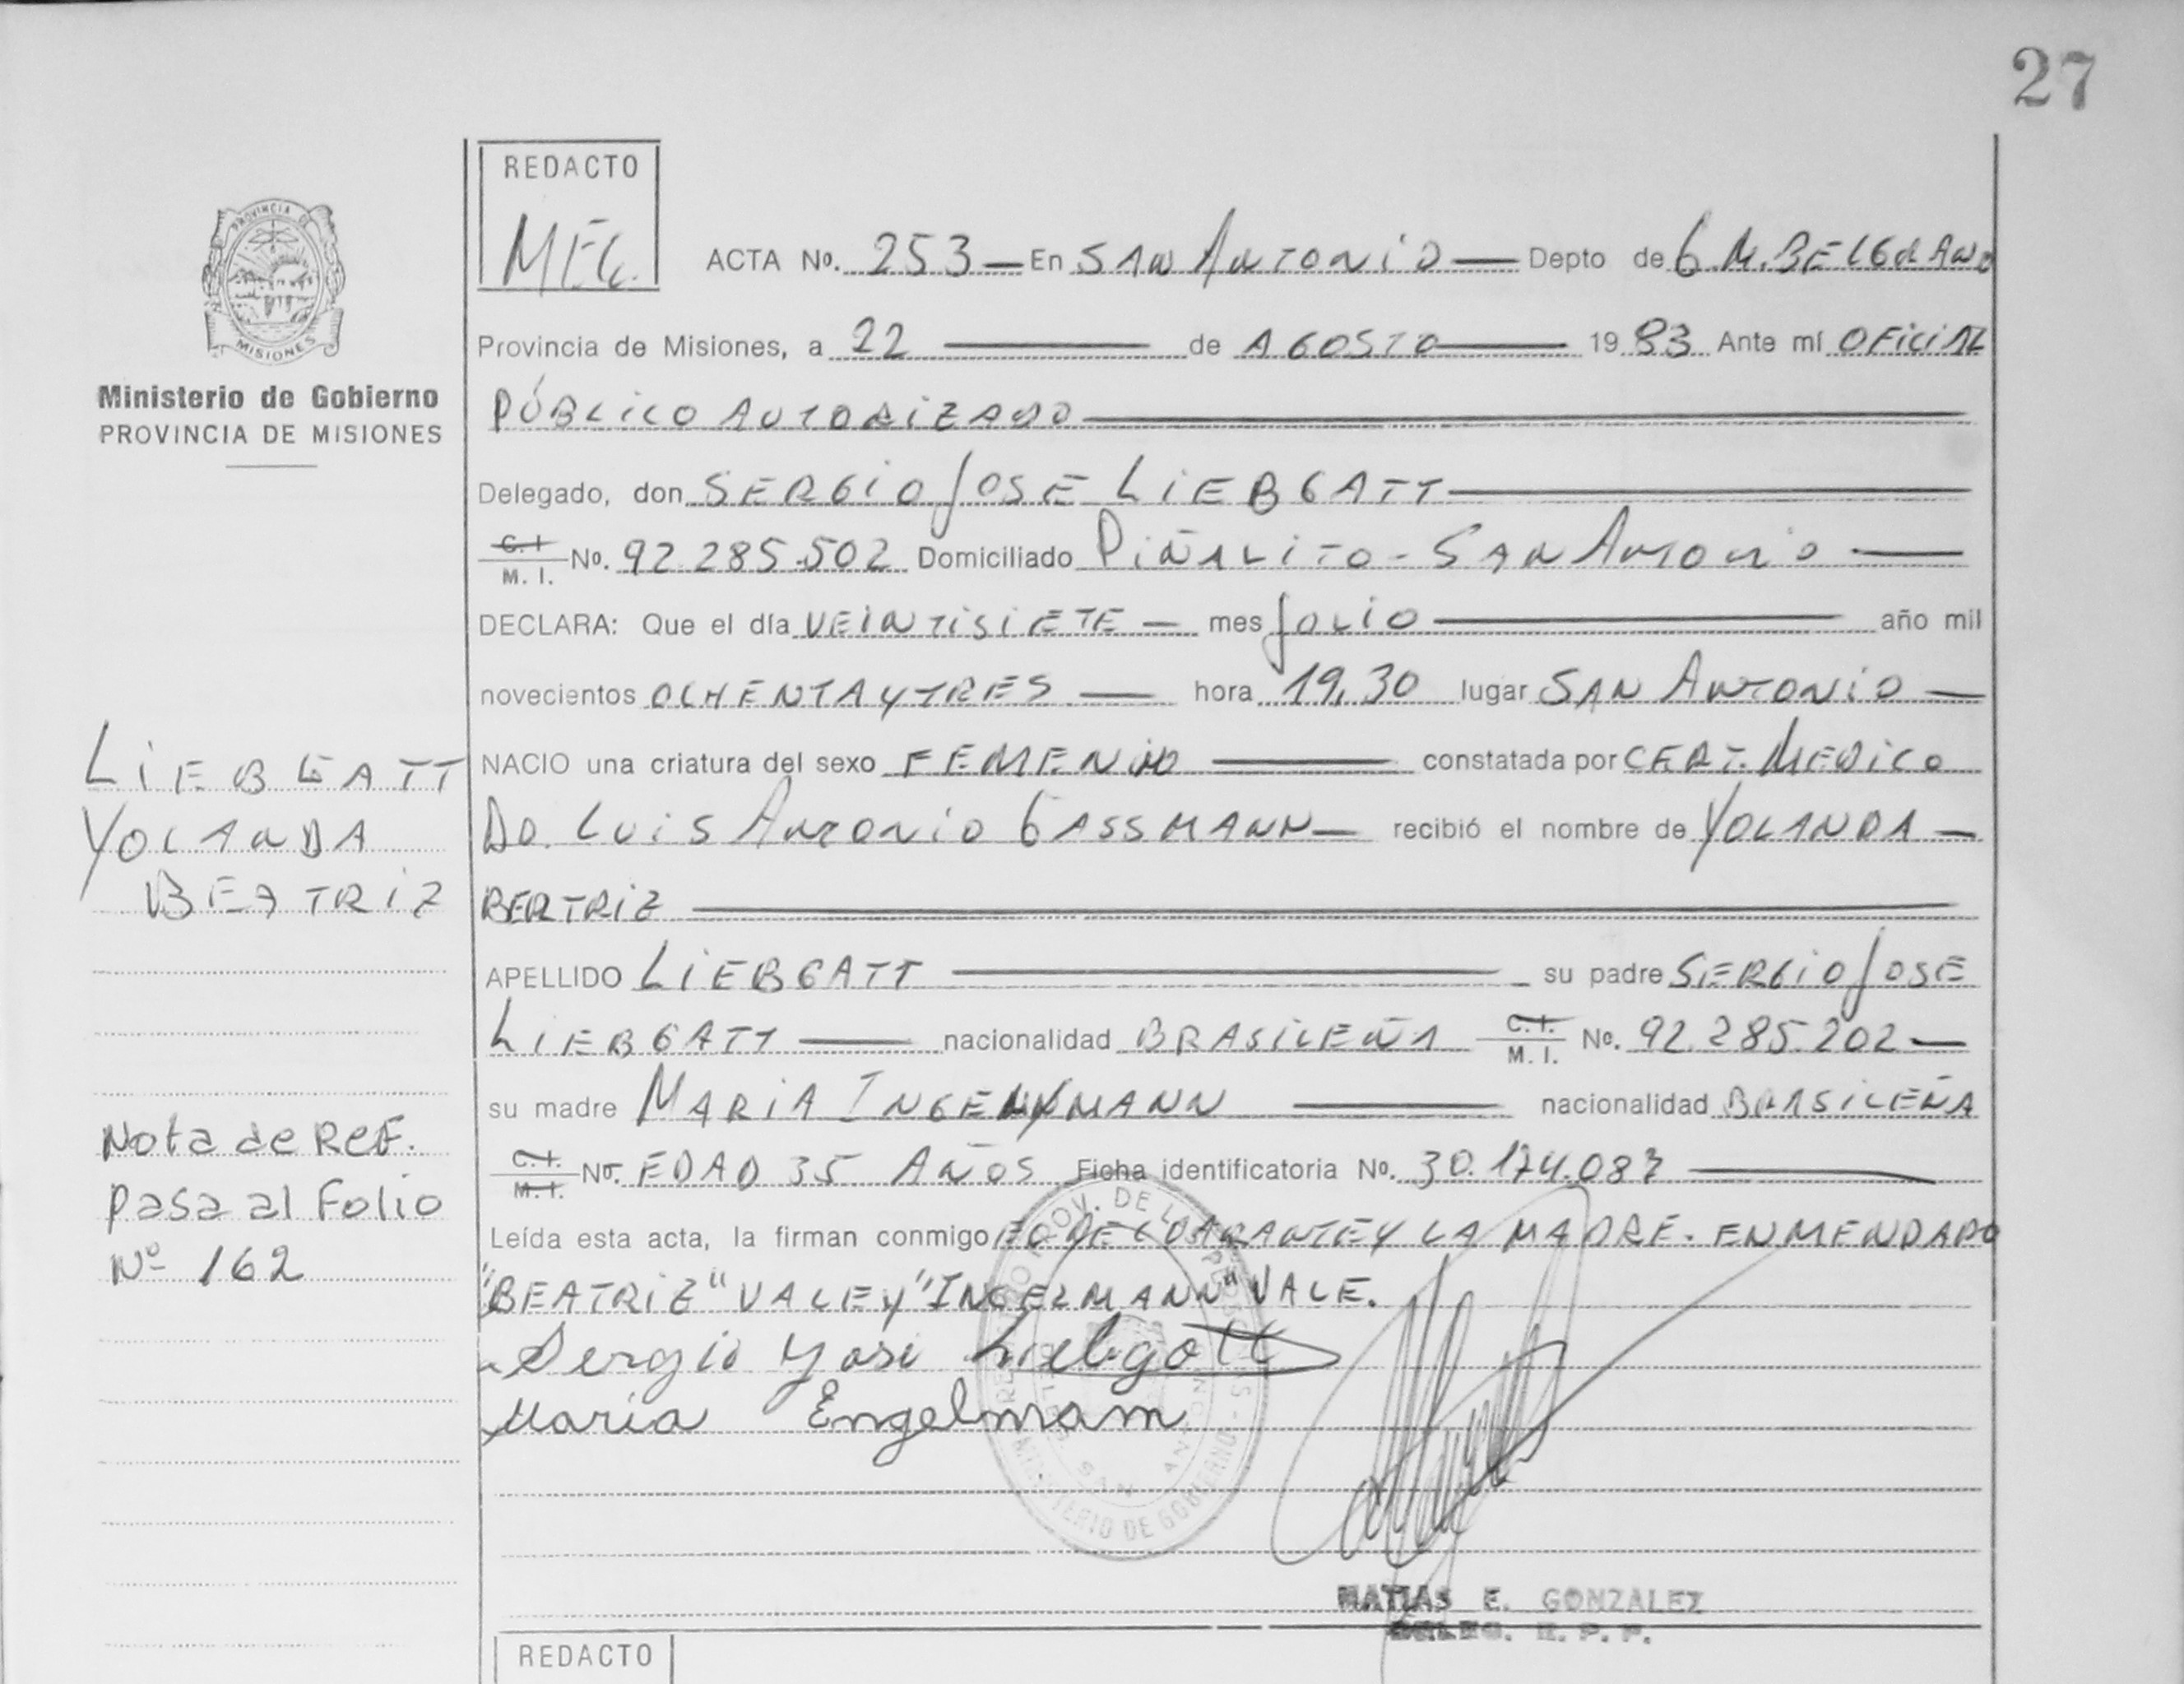 27
REDACTO
MEG.
ACTA No. 253 — En SAN ANTONIO — Depto de G.M.BELGRANO
Provincia de Misiones, a 22 — de AGOSTO — 1983 Ante mí OFICIAL
PÚBLICO AUTORIZADO
Delegado, don SERGIO JOSE LIEBGATT
C.I. M. I. No. 92.285.502 Domiciliado PIÑALITO - SAN ANTONIO —
DECLARA: Que el día VEINTISIETE — mes JULIO — año mil
novecientos OCHENTA Y TRES — hora 19,30 lugar SAN ANTONIO —
NACIO una criatura del sexo FEMENINO — constatada por CERT. MEDICO
DR. LUIS ANTONIO GASSMANN — recibió el nombre de YOLANDA —
BEATRIZ
APELLIDO LIEBGATT — su padre SERGIO JOSE
LIEBGATT — nacionalidad BRASILEÑA C.I. M. I. No. 92.285.202 —
su madre MARIA INGELMANN — nacionalidad BRASILEÑA
C.I. M.I. No. EDAD 35 AÑOS Ficha identificatoria No. 30.174.087 —
Leída esta acta, la firman conmigo EL DECLARANTE Y LA MADRE. ENMENDADO
"BEATRIZ" VALE Y "INGELMANN" VALE.
Sergio Yosé Liebgott
Maria Engelmam
MATIAS E. GONZALEZ
DELEG. R. P. P.
REDACTO
PROVINCIA DE
MISIONES
Ministerio de Gobierno
PROVINCIA DE MISIONES
LIEBGATT
YOLANDA
BEATRIZ
Nota de Ref.
Pasa al Folio
Nº 162
REGISTRO PROV. DE LAS PERSONAS
MINISTERIO DE GOBIERNO
SAN ANTONIO